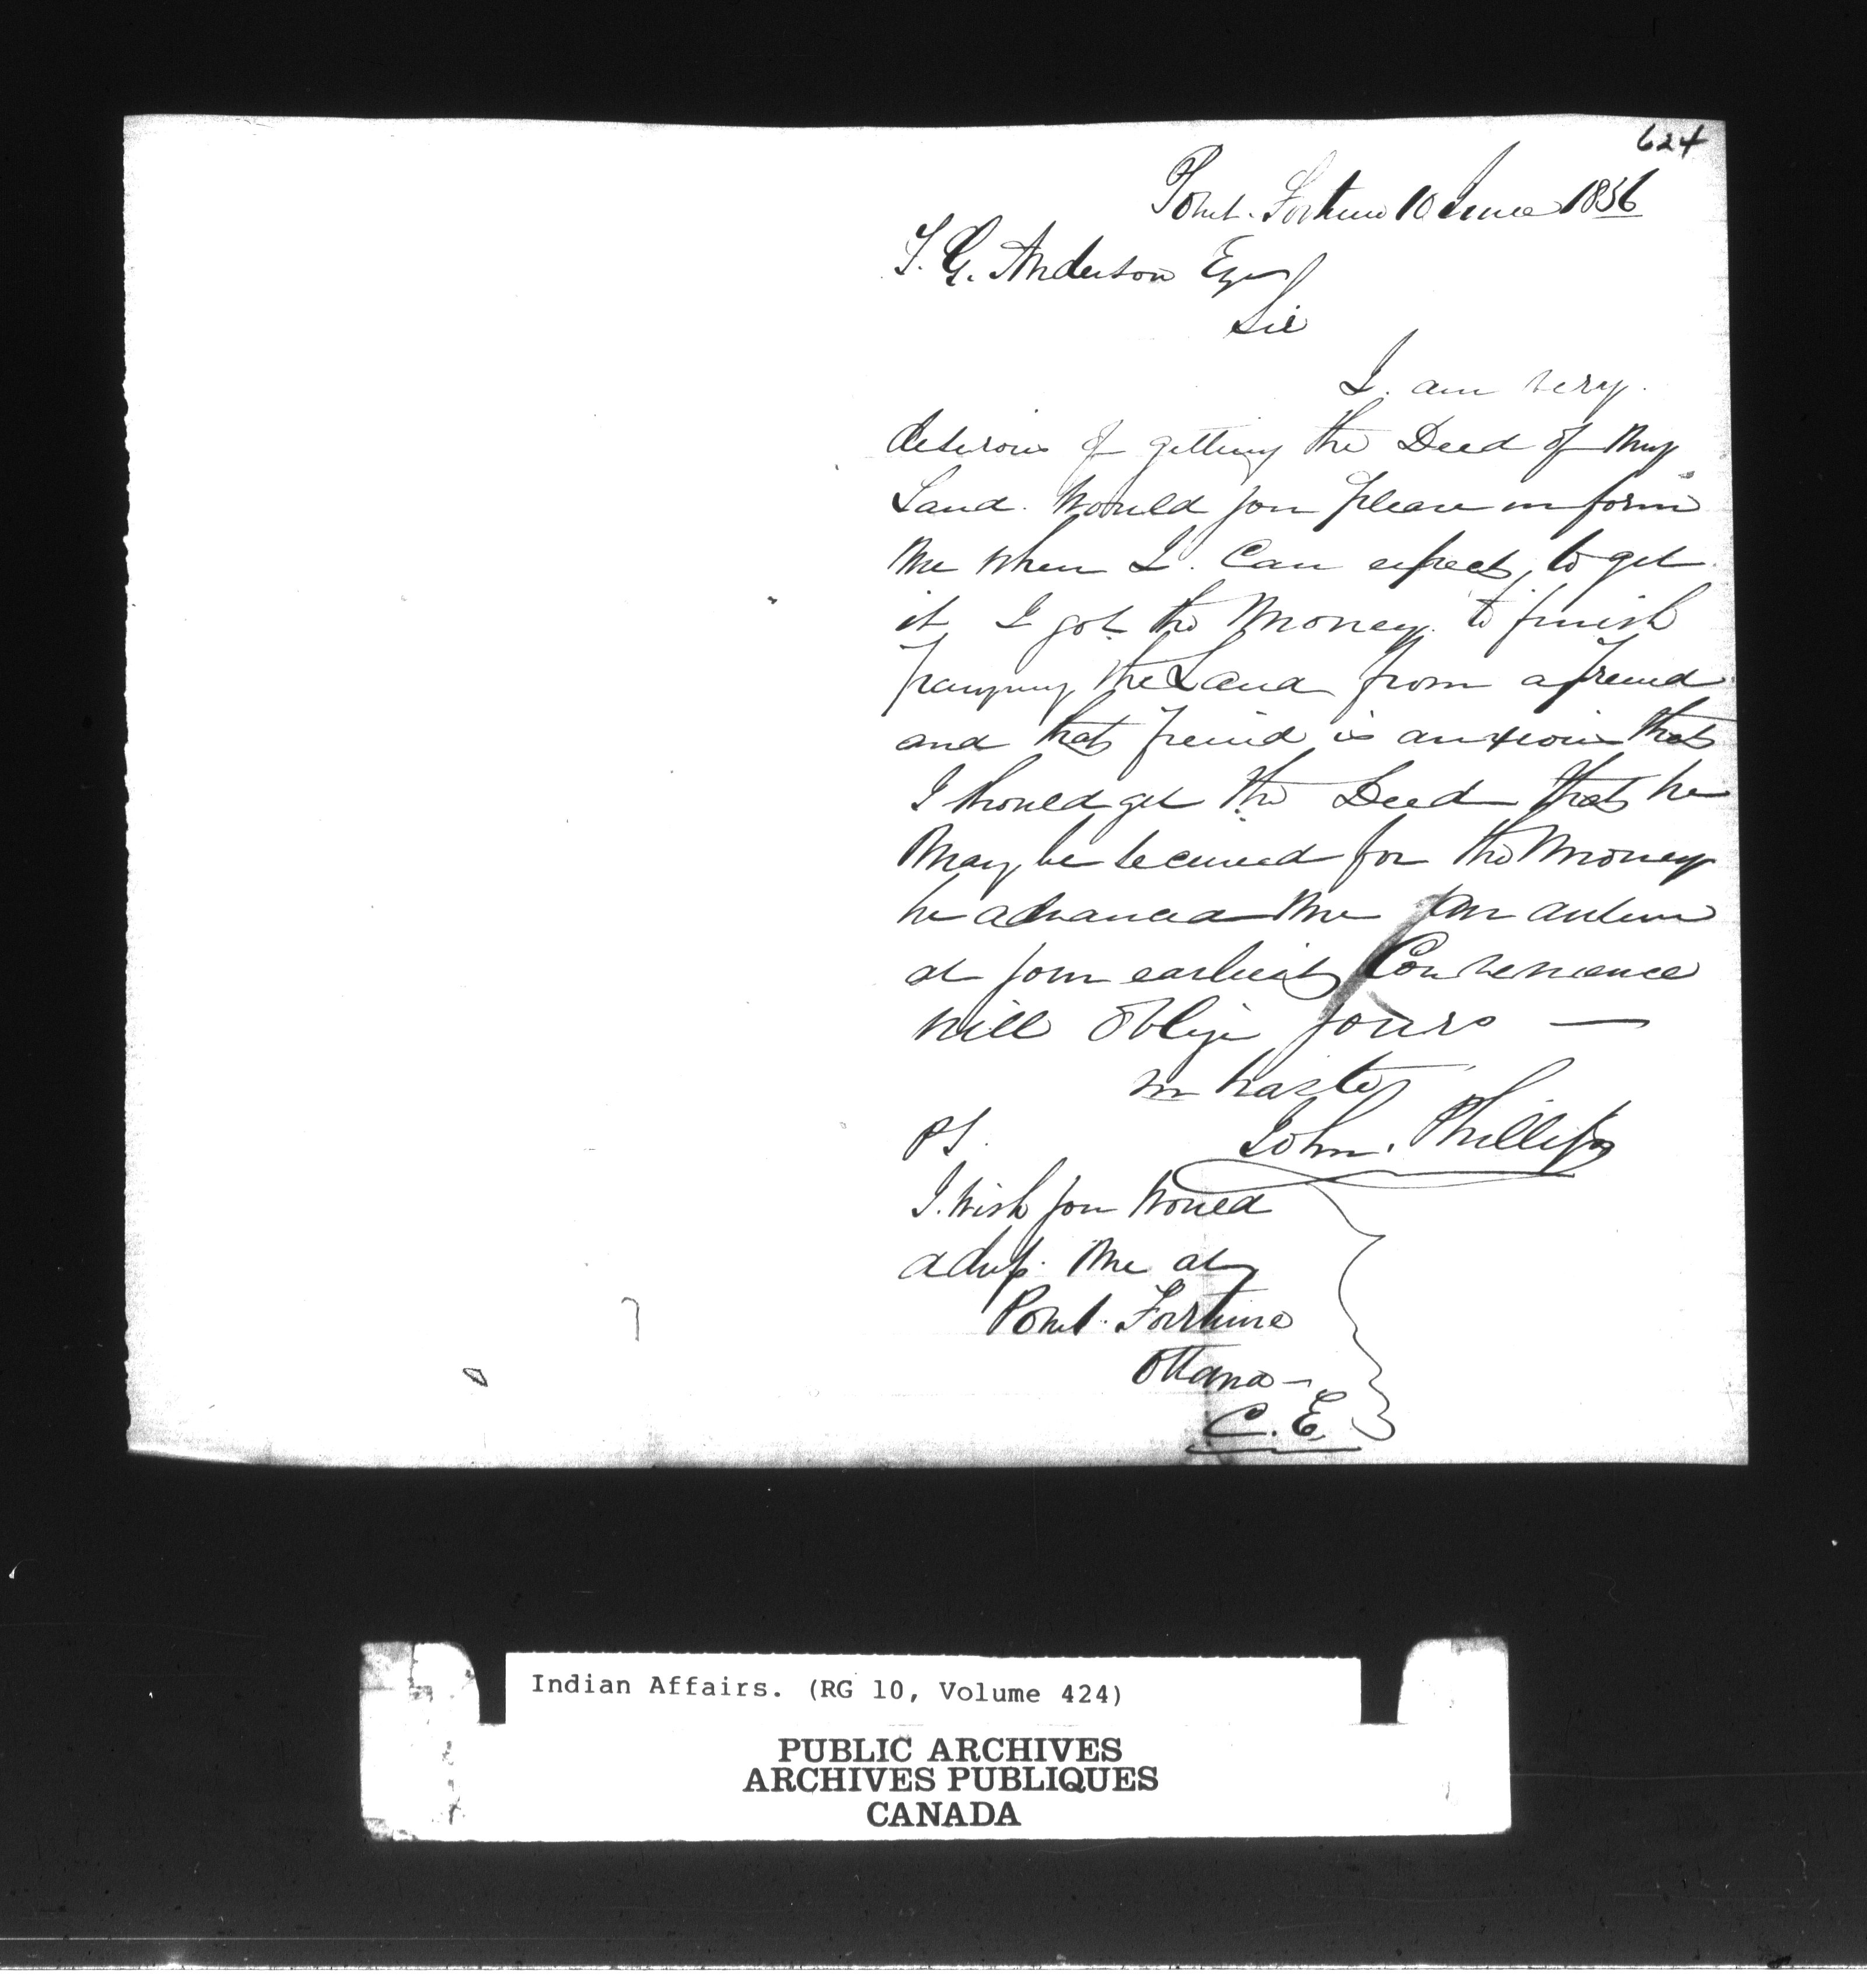 624
Point Fortune 10 June 1856
T. G. Anderson Esqr
Sir
I. am very
desirous of getting the Deed of my
Land. Would you please inform
me when I. Can expect to get
it I got the Money. to finish
paying the Land from a freind
and that freind is anxious that
I should get the Deed that he
May be secured for the Money
he advanced me An answer
at your earliest Convenience
will oblige yours —
in haste
John. Phillips
PS.
I. wish you would
adress me at
Point Fortune
Ottawa —
C. E
Indian Affairs. (RG 10, Volume 424)
PUBLIC ARCHIVES
ARCHIVES PUBLIQUES
CANADA